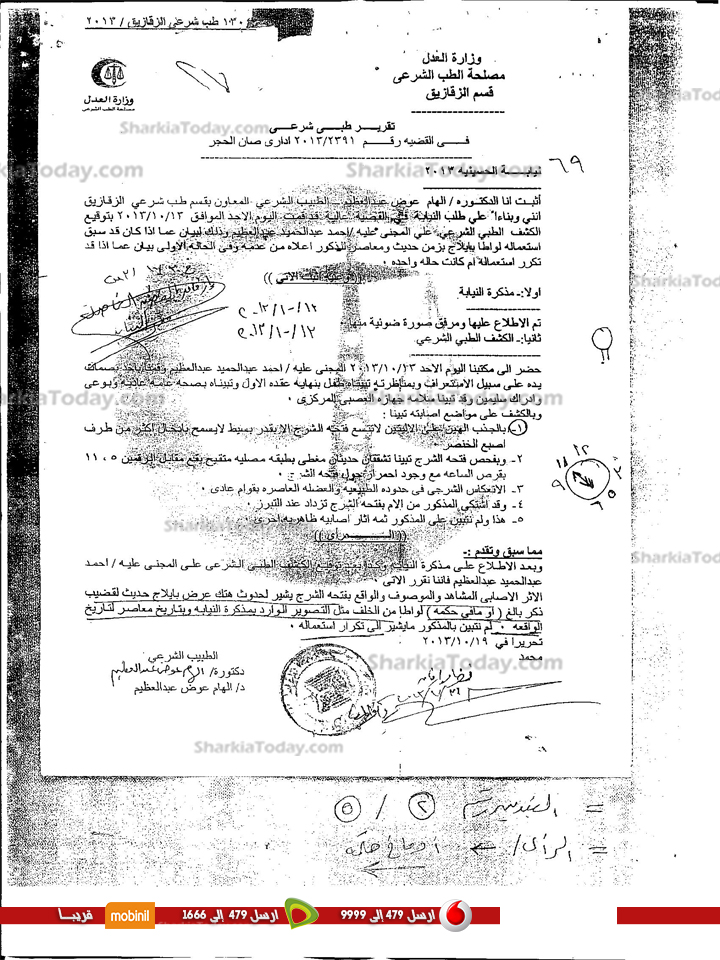 ١٣٠ طب شرعى الزقازيق / ٢٠١٣
وزارة العدل
مصلحة الطب الشرعى
قسم الزقازيق
وزارة العدل
مصلحة الطب الشرعى
تقرير طبى شرعى
فى القضيه رقم ٢٠١٣/٢٣٩١ ادارى صان الحجر
نيابة الحسينيه ٢٠١٣
٦٩
أثبت انا الدكتوره / الهام عوض عبدالعظيم الطبيب الشرعي المعاون بقسم طب شرعي الزقازيق
انني وبناءا علي طلب النيابة في القضية عاليه قد قمت اليوم الاحد الموافق ٢٠١٣/١٠/١٣ بتوقيع
الكشف الطبي الشرعي علي المجنى عليه / وذلك لبيان عما اذا كان قد سبق
استعماله لواطا بايلاج بزمن حديث ومعاصر للذكور اعلاه من عدمه وفى الحاله الاولى بيان عما اذا قد
تكرر استعماله ام كانت حاله واحده ٠
اولا:ـ مذكرة النيابة
تم الاطلاع عليها ومرفق صورة ضوئية منها
ثانيا:ـ الكشف الطبي الشرعي
حضر الى مكتبنا اليوم الاحد ٢٠١٣/١٠/١٣ المجنى عليه / بصمات
يده على سبيل الاستعراف وبمناظرته تبيناه طفل بنهايه عقده الاول وتبيناه بصحه عامه عاديه وبوعى
وادراك سليمين وقد تبينا سلامه جهازه العصبى المركزى ٠
وبالكشف على مواضع اصابته تبينا :
١ـ بالجذب الهين على الاليتين لا تتسع فتحه الشرج الا بقدر بسيط لايسمح بادخال اكثر من طرف
اصبع الخنصر ٠
٢ـ وبفحص فتحه الشرج تبينا تشققان حديثان مغطى بطبقه مصليه متقيح يقع مقابل الرقمين ٥ ، ١١
بقرص الساعه مع وجود احمرار حول فتحه الشرج ٠
٣ـ الانعكاس الشرجى فى حدوده الطبيعيه والعضله العاصره بقوام عادى ٠
٤ـ وقد اشتكى المذكور من الام بفتحه الشرج تزداد عند التبرز ٠
٥ـ هذا ولم نتبين على المذكور ثمه اثار اصابيه ظاهريه اخرى ٠
(( الـــــراى ))
مما سبق وتقدم :ـ
وبعد الاطلاع على مذكرة النيابه وكذا بعد توقيع الكشف الطبى الشرعى على المجنى عليه /
فاننا نقرر الاتى ٠
الاثر الاصابى المشاهد والموصوف والواقع بفتحه الشرج يشير لحدوث هتك عرض بايلاج حديث لقضيب
ذكر بالغ ( او مافى حكمه ) لواطا من الخلف مثل التصوير الوارد بمذكرة النيابه وبتاريخ معاصر لتاريخ
الواقعه ٠ لم نتبين بالمذكور مايشير الى تكرار استعماله ٠
تحريرا في ٢٠١٣/١٠/١٩
محمد
الطبيب الشرعي
دكتورة/ الهام عوض عبدالعظيم
د/ الهام عوض عبدالعظيم
SharkiaToday.com
ارسل 479 إلى 9999
ارسل 479 إلى 1666
mobinil
قريبا